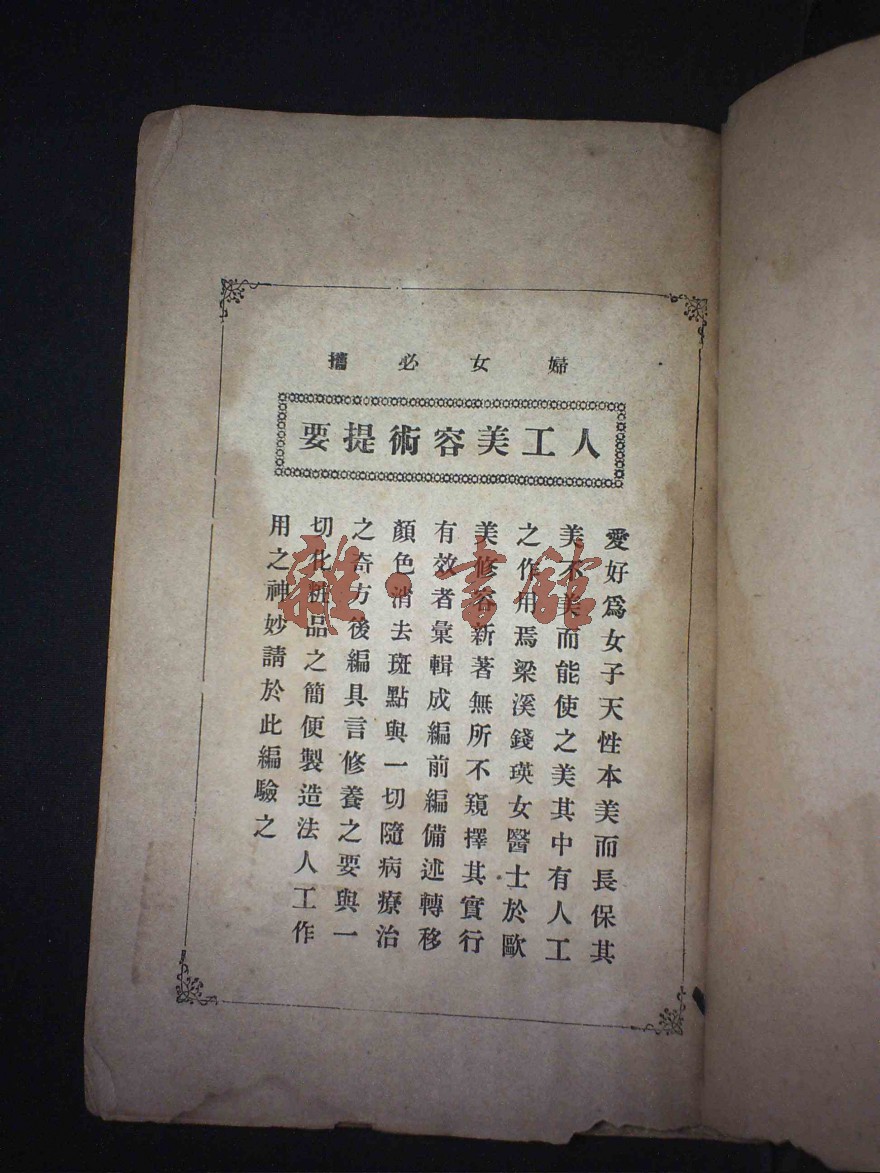 婦女必攜
人工美容術提要
愛好爲女子天性本美而長保其
美不美而能使之美其中有人工
之作用焉梁溪錢瑛女醫士於歐
美修容新著無所不窺擇其實行
有效者彙輯成編前編備述轉移
顏色消去斑點與一切隨病療治
之奇方後編具言修養之要與一
切化粧品之簡便製造法人工作
用之神妙請於此編驗之
雜·書館